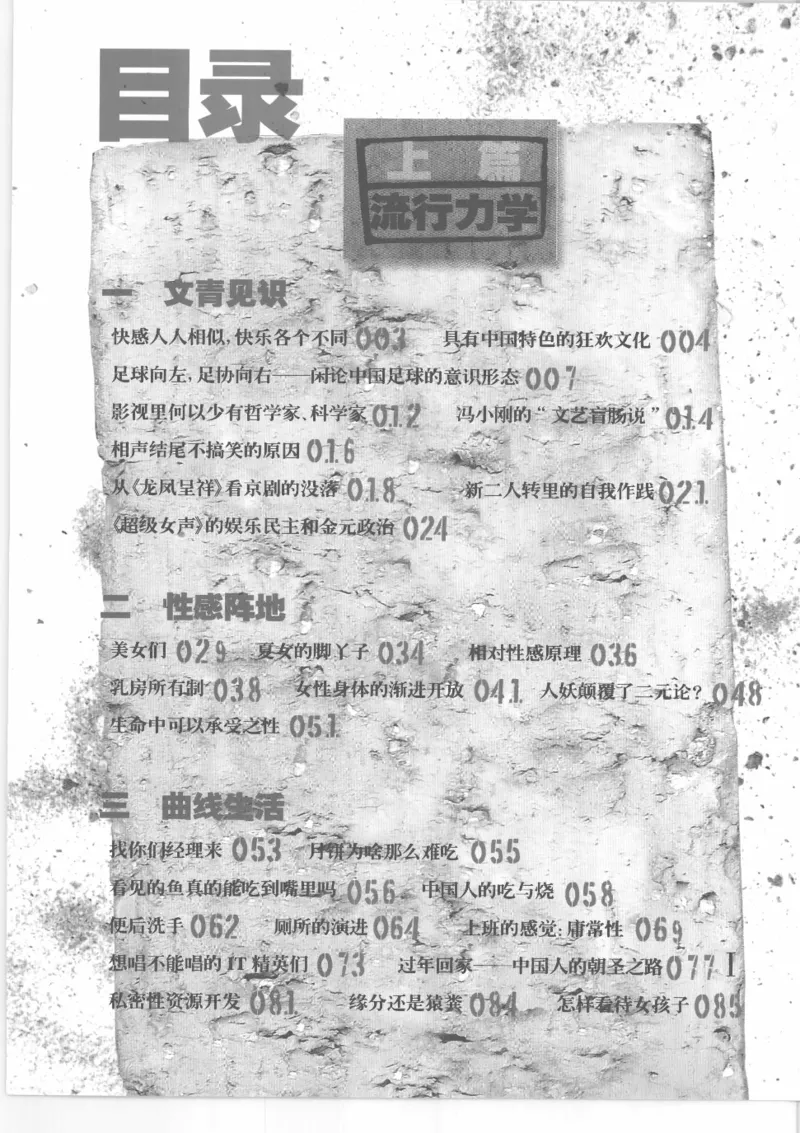 目录
上 篇
流行力学
一 文青见识
快感人人相似,快乐各个不同 003 具有中国特色的狂欢文化 004
足球向左,足协向右——闲论中国足球的意识形态 007
影视里何以少有哲学家、科学家 012 冯小刚的“文艺盲肠说” 014
相声结尾不搞笑的原因 016
从《龙凤呈祥》看京剧的没落 018 新二人转里的自我作践 021
《超级女声》的娱乐民主和金元政治 024
二 性感阵地
美女们 029 夏女的脚丫子 034 相对性感原理 036
乳房所有制 038 女性身体的渐进开放 041 人妖颠覆了二元论? 048
生命中可以承受之性 051
三 曲线生活
找你们经理来 053 月饼为啥那么难吃 055
看见的鱼真的能吃到嘴里吗 056 中国人的吃与烧 058
便后洗手 062 厕所的演进 064 上班的感觉:庸常性 069
想唱不能唱的 IT 精英们 073 过年回家——中国人的朝圣之路 077 I
私密性资源开发 081 缘分还是猿粪 084 怎样看待女孩子 085